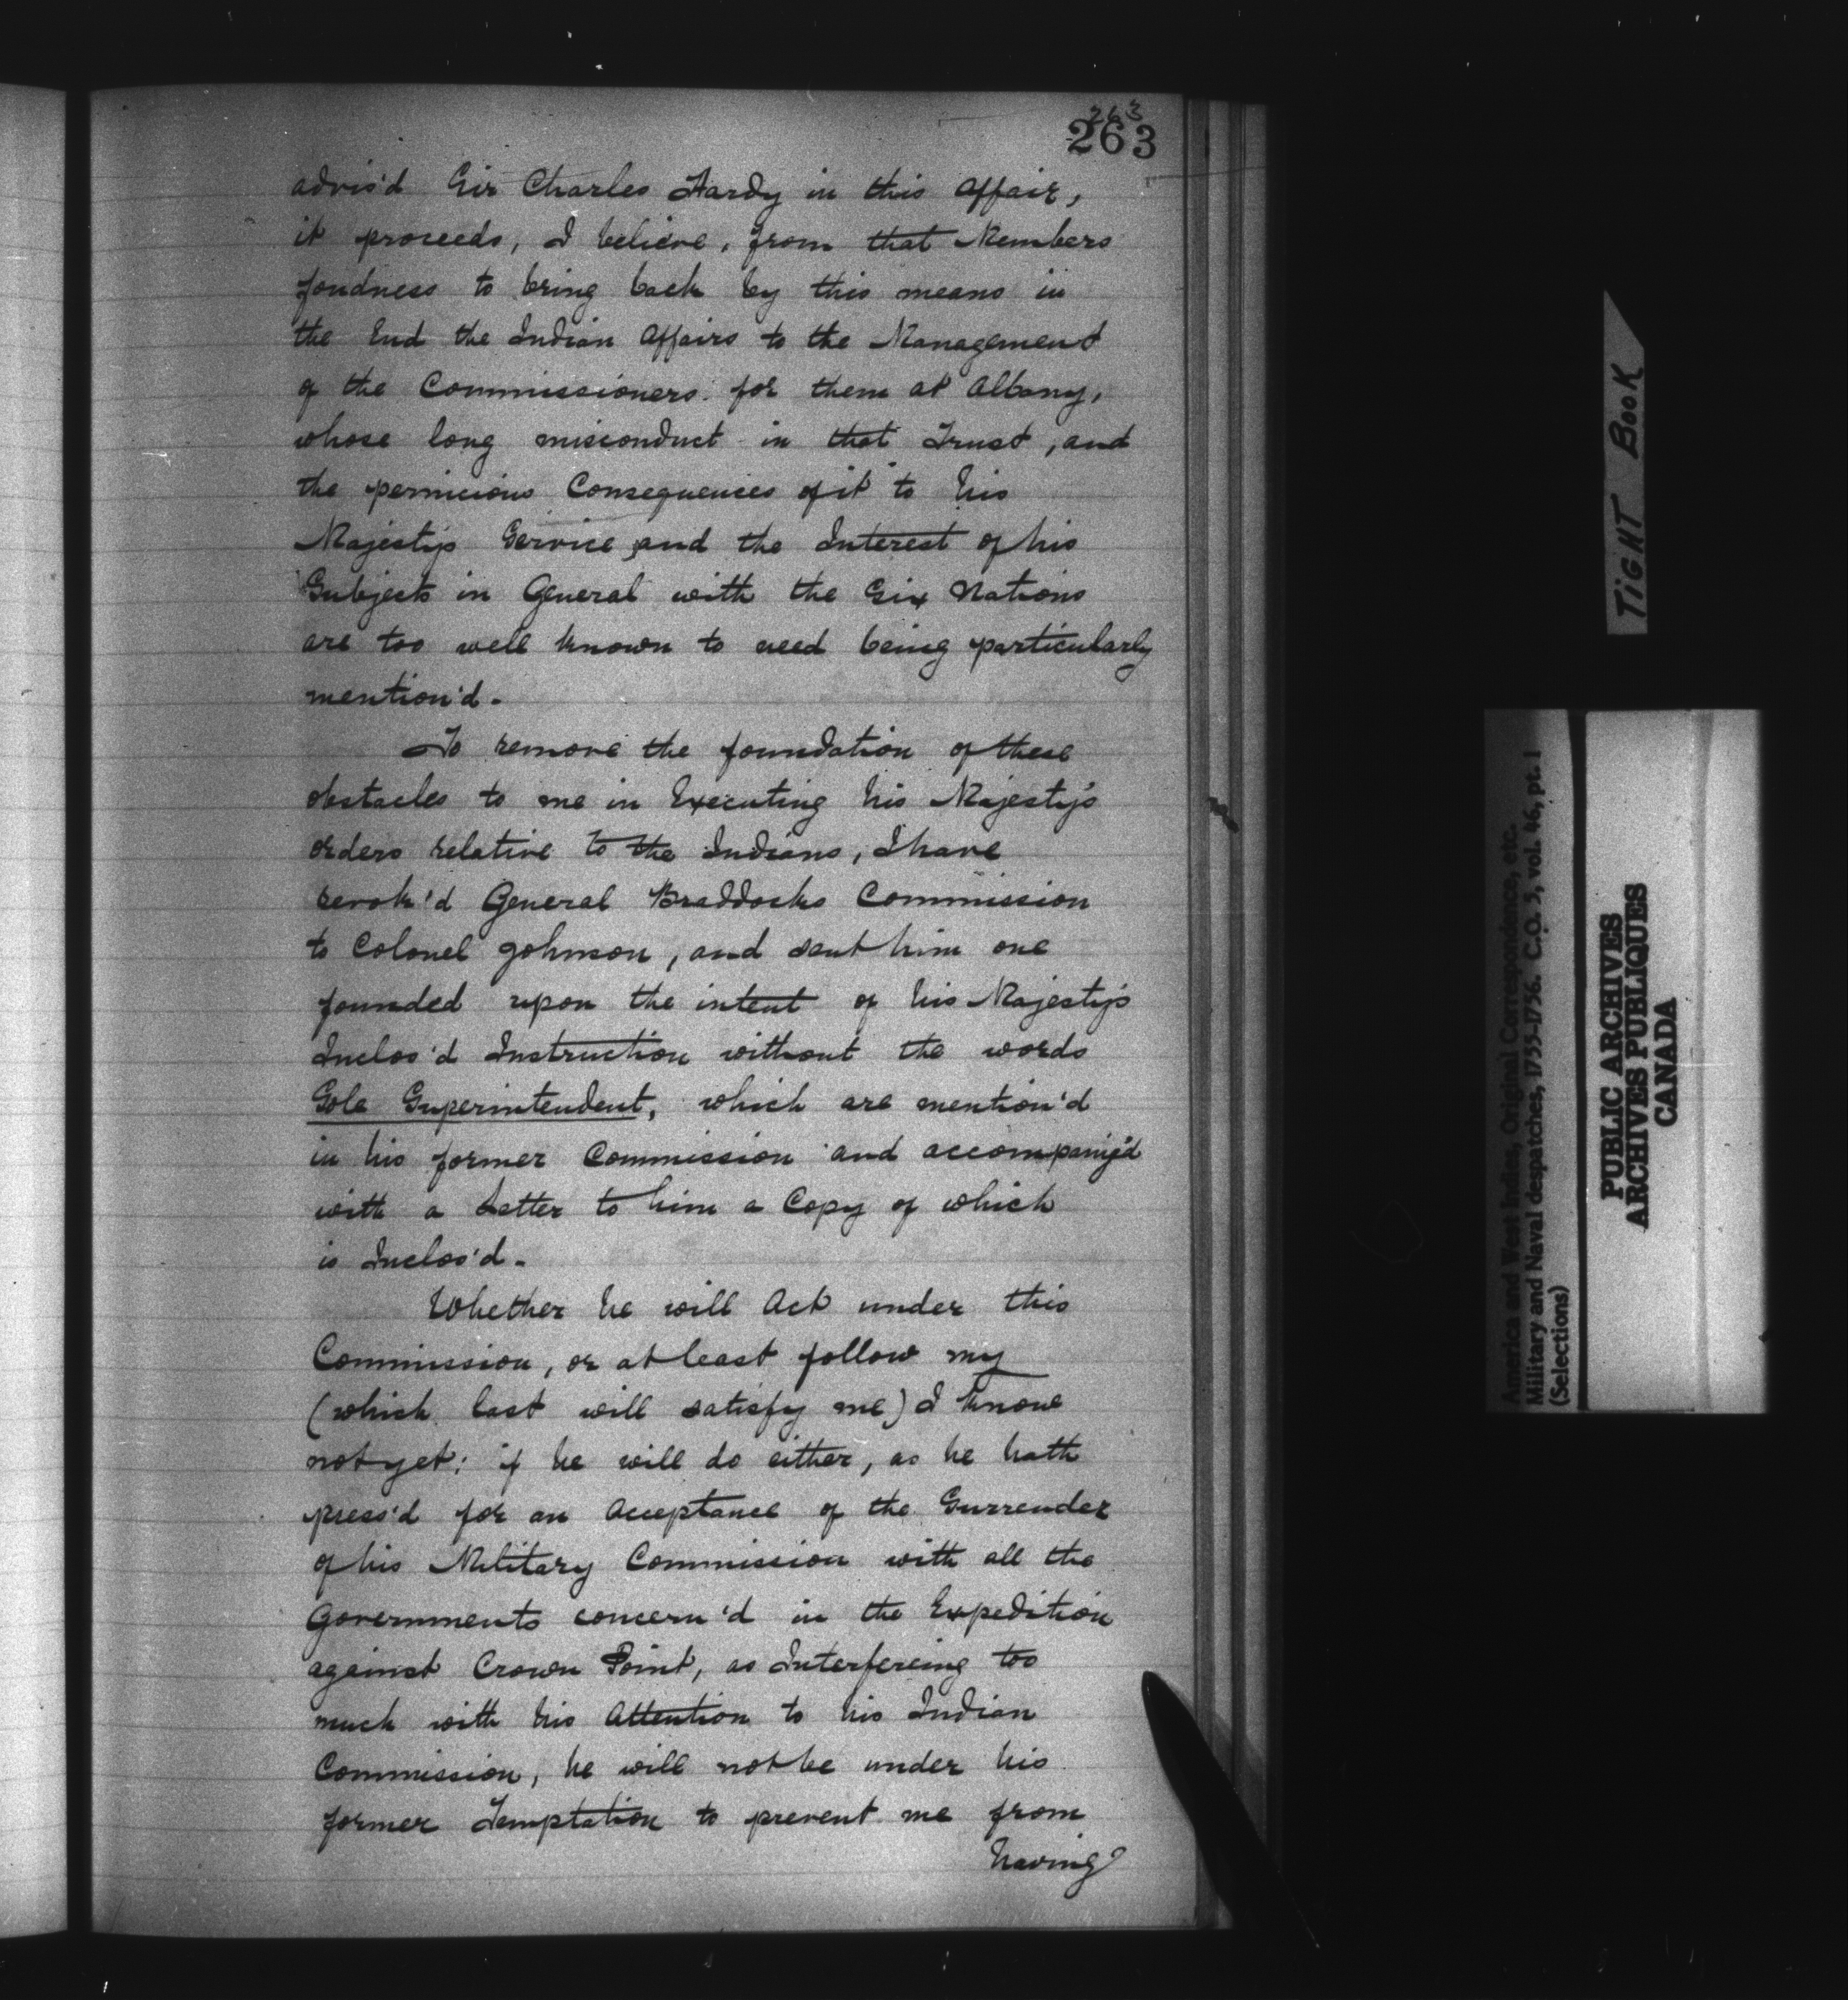 263
263
advis'd Sir Charles Hardy in this affair,
it proceeds, I believe, from that Members
fondness to bring back by this means in
the End the Indian Affairs to the Management
of the Commissioners for them at Albany,
whose long misconduct in that Trust, and
the pernicious Consequences of it to his
Majesty's Service, and the Interest of his
Subjects in General with the Six Nations
are too well known to need being particularly
mention'd.
To remove the foundation of these
obstacles to me in Executing his Majesty's
orders relative to the Indians, I have
revok'd General Braddocks Commission
to Colonel Johnson, and sent him one
founded upon the intent of his Majesty's
Inclos'd Instruction without the words
Sole Superintendent, which are mention'd
in his former Commission and accompany'd
with a Letter to him a Copy of which
is Inclos'd.
Whether he will Act under this
Commission, or at least follow my
(which last will satisfy me) I know
not yet; if he will do either, as he hath
press'd for an Acceptance of the Surrender
of his Military Commission with all the
Governments concern'd in the Expedition
against Crown Point, as Interfereing too
much with his Attention to his Indian
Commission, he will not be under his
former Temptation to prevent me from
having
TIGHT BOOK
America and West Indies, Original Correspondence, etc.
Military and Naval despatches, 1755-1756. C.O. 5, vol. 46, pt. 1
(Selections)
PUBLIC ARCHIVES
ARCHIVES PUBLIQUES
CANADA